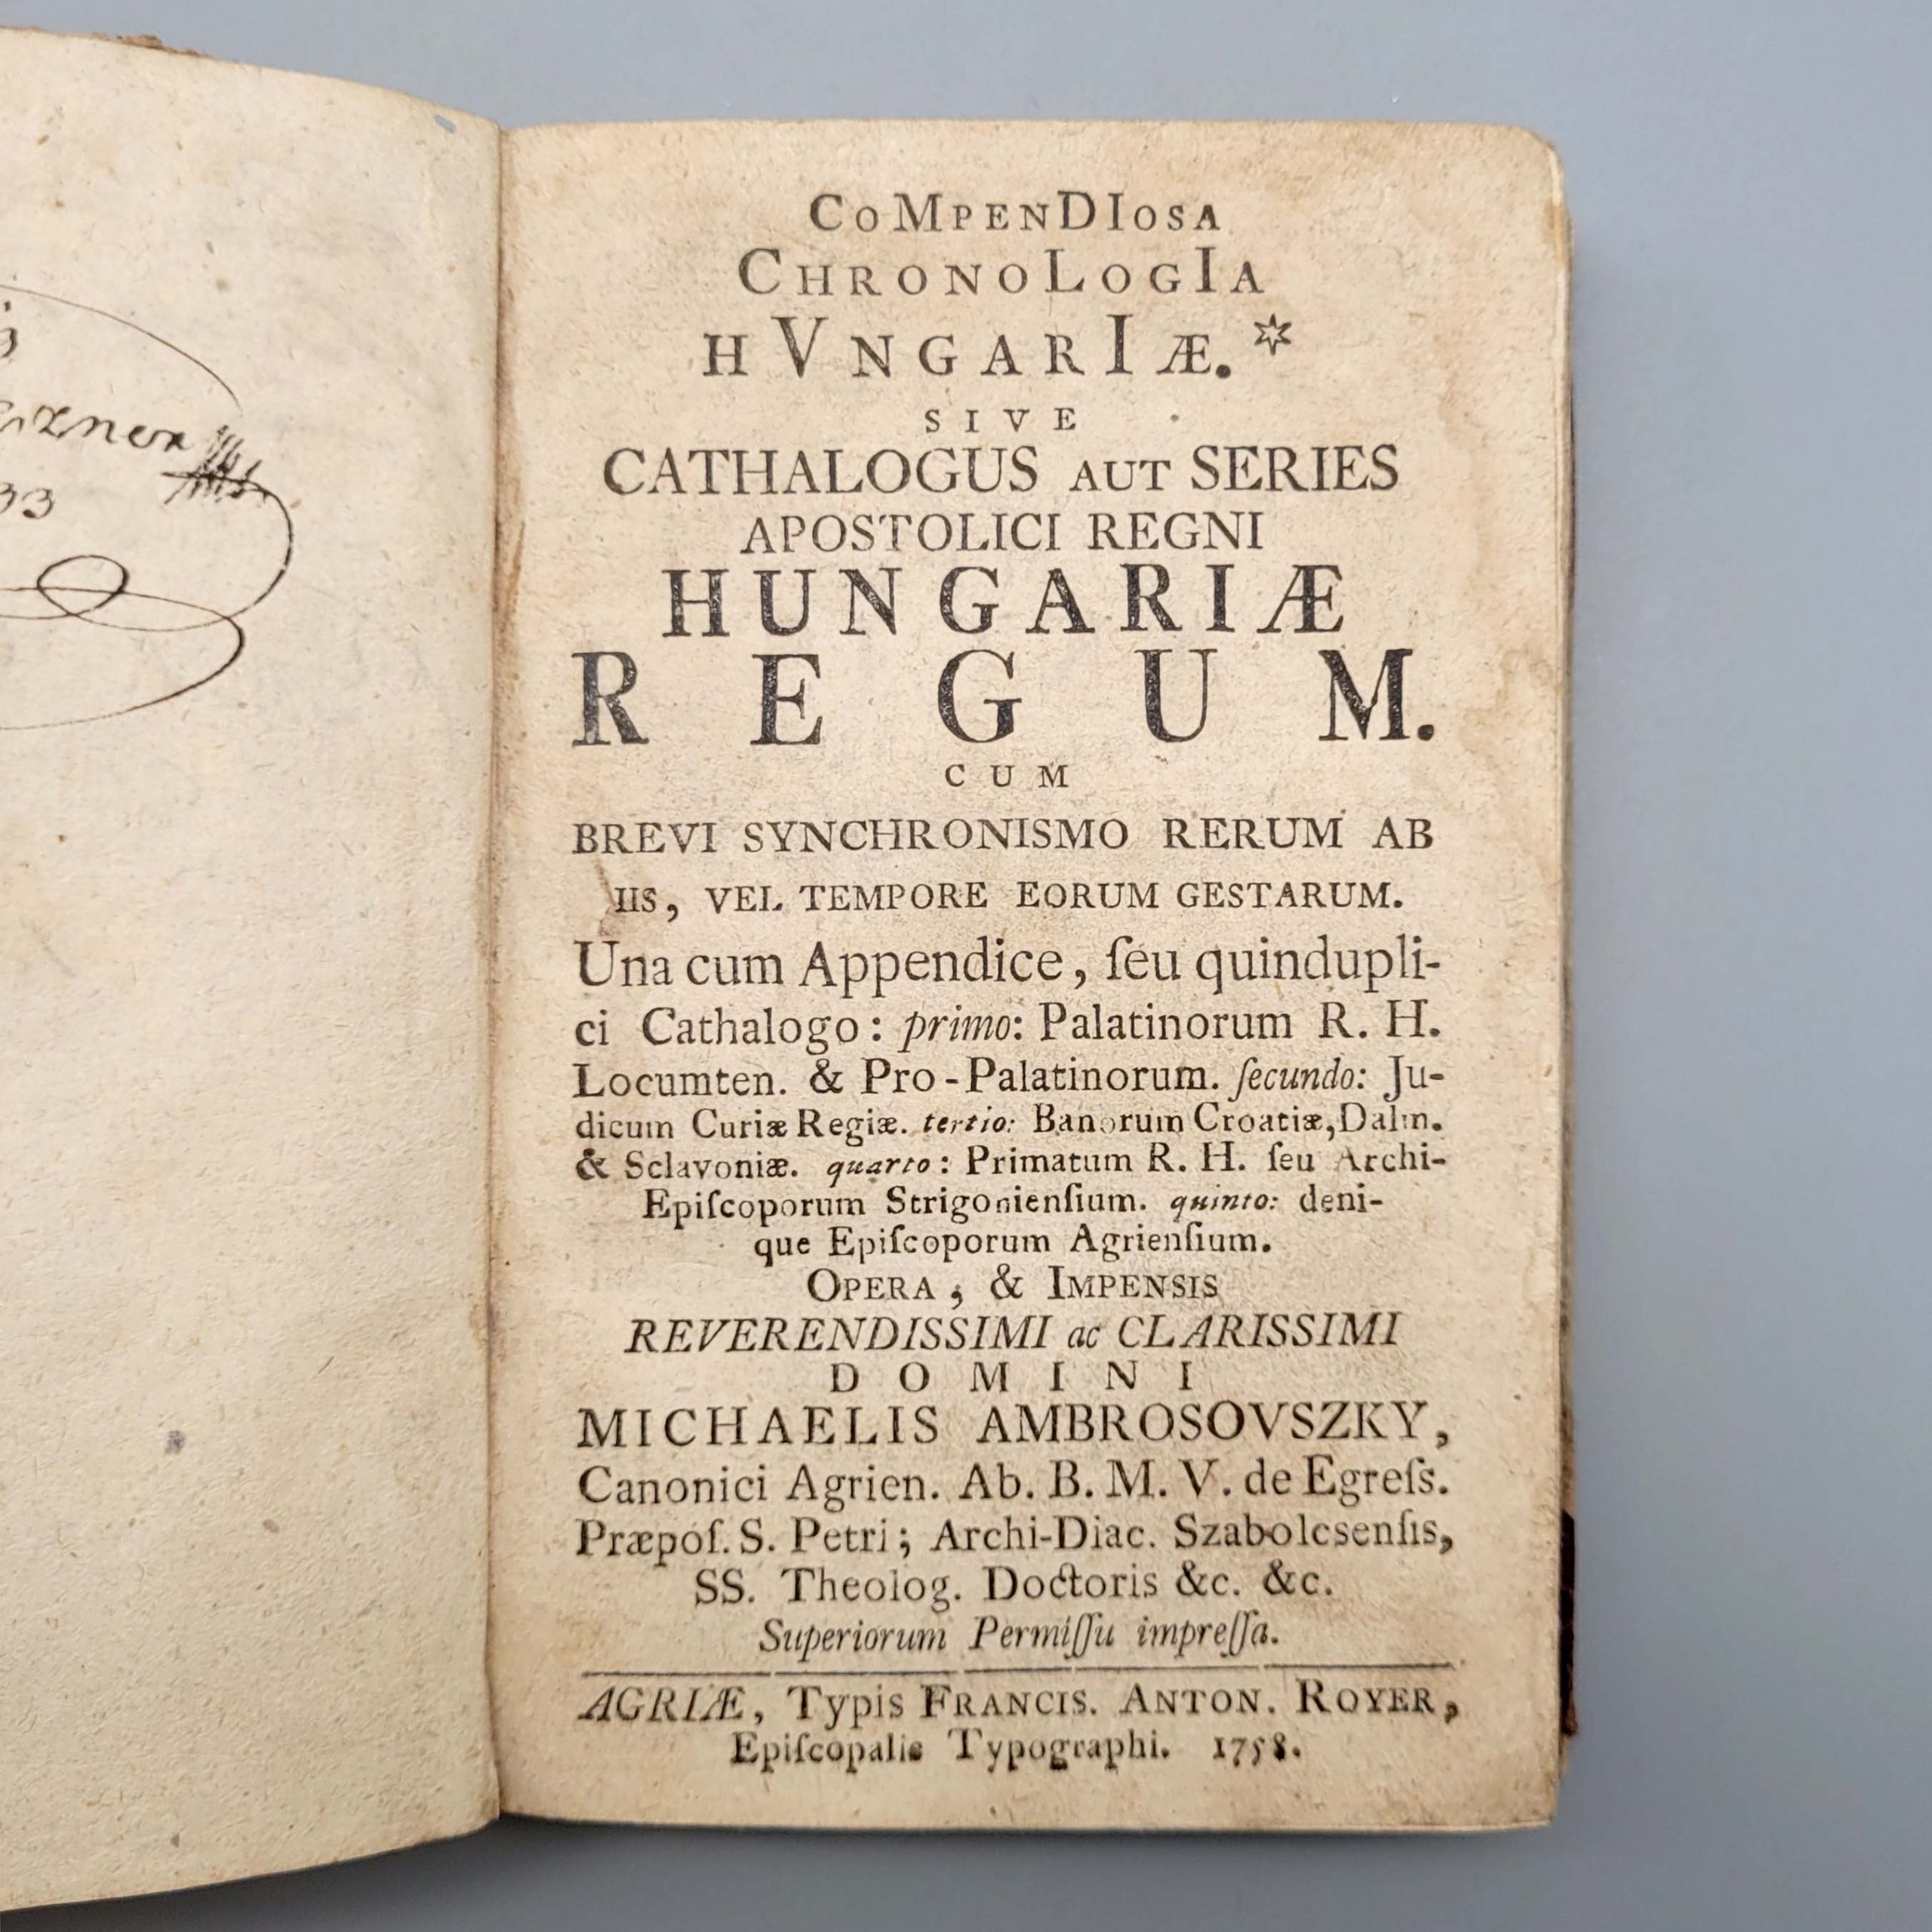 33
CoMpenDIosa
ChronoLogIa
hVngarIæ.*
SIVE
CATHALOGUS AUT SERIES
APOSTOLICI REGNI
HUNGARIÆ
REGUM.
CUM
BREVI SYNCHRONISMO RERUM AB
IIS, VEL TEMPORE EORUM GESTARUM.
Una cum Appendice, ſeu quindupli-
ci Cathalogo: primo: Palatinorum R. H.
Locumten. & Pro-Palatinorum. ſecundo: Ju-
dicum Curiæ Regiæ. tertio: Banorum Croatiæ, Dalm.
& Sclavoniæ. quarto: Primatum R. H. ſeu Archi-
Epiſcoporum Strigonienſium. quinto: deni-
que Epiſcoporum Agrienſium.
OPERA, & IMPENSIS
REVERENDISSIMI ac CLARISSIMI
DOMINI
MICHAELIS AMBROSOVSZKY,
Canonici Agrien. Ab. B. M. V. de Egreſs.
Præpoſ. S. Petri; Archi-Diac. Szabolcsenſis,
SS. Theolog. Doctoris &c. &c.
Superiorum Permiſſu impreſſa.
AGRIÆ, Typis FRANCIS. ANTON. ROYER,
Epiſcopalis Typographi. 1758.